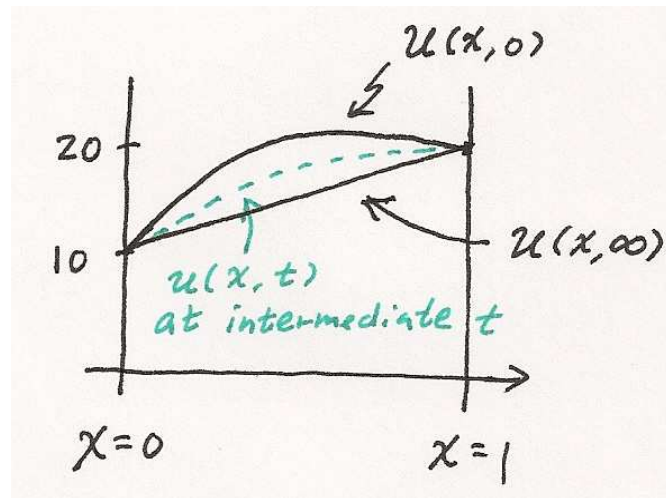 u(x,0)
20
10
u(x,∞)
u(x,t)
at intermediate t
x=0
x=1